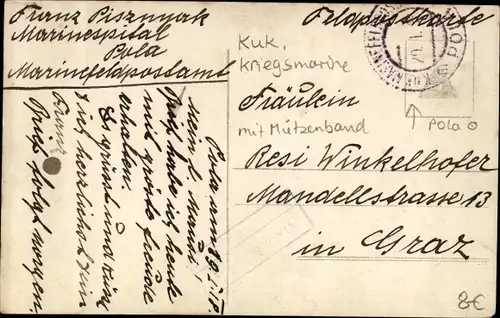 Franz Pisznyak
Marinespital
Pola
Marinefeldpostamt
Feldpostkarte
K.u.K.
Kriegsmarine
mit Mützenband
Pola
Fräulein
Resi Winkelhofer
Mandellstrasse 13
in Graz
8€
Pola am 29. I. 15.
Mein l. Mausi
habe ich heute
mit größte freude
erhalten.
Es grüsst und küsst
dich herzlichst Dein
Franz
Brief folgt morgen.